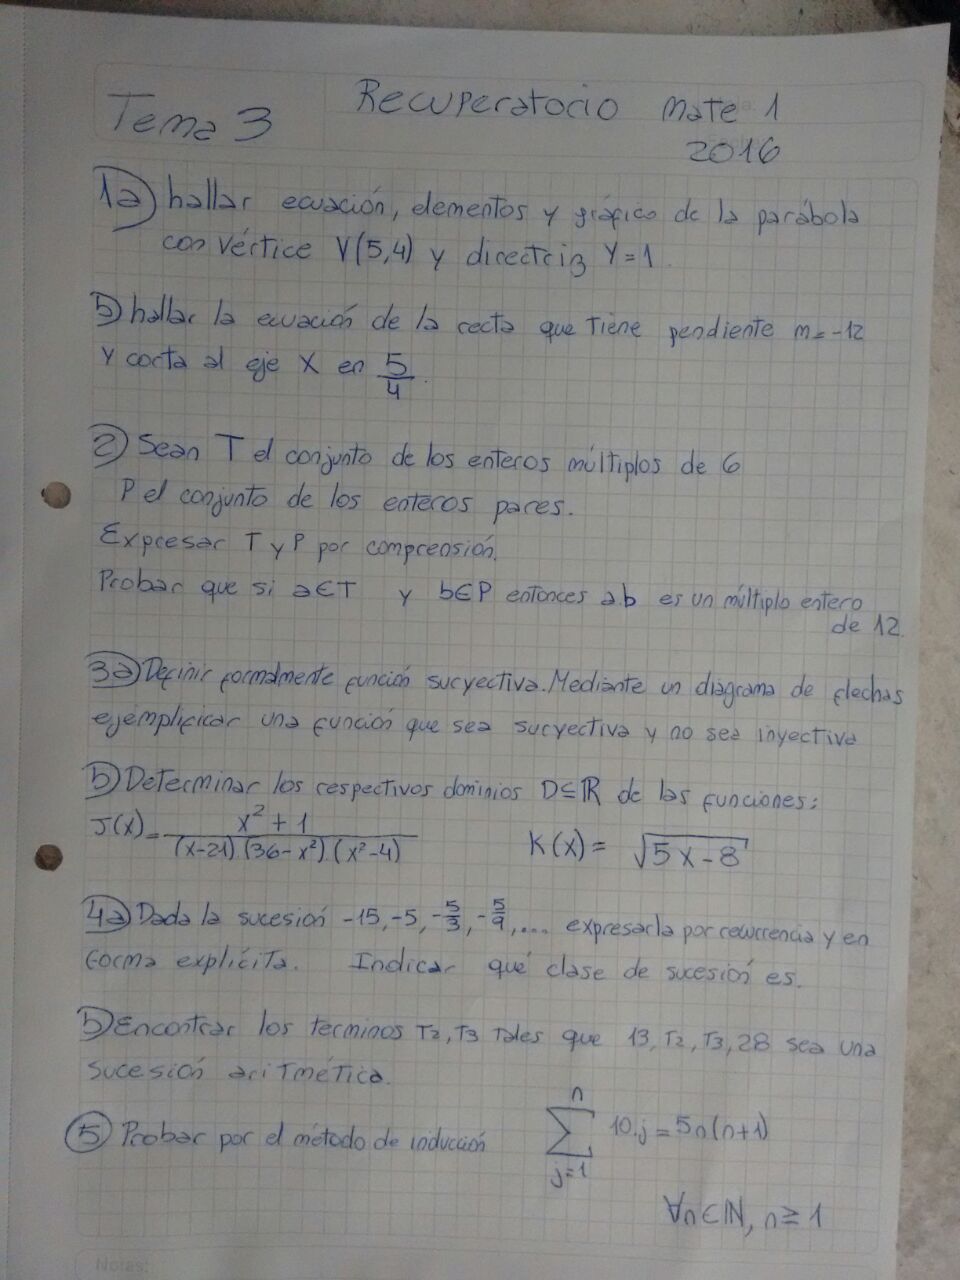 Tema 3
Recuperatorio Mate 1
2016
1a) hallar ecuación, elementos y gráfico de la parábola
con vértice V(5,4) y directriz Y=1.
b) hallar la ecuación de la recta que tiene pendiente m=-12
y corta al eje X en 5/4.
2) Sean T el conjunto de los enteros múltiplos de 6
P el conjunto de los enteros pares.
Expresar T y P por comprensión.
Probar que si a∈T y b∈P entonces a.b es un múltiplo entero
de 12.
3a) Definir formalmente función suryectiva. Mediante un diagrama de flechas
ejemplificar una función que sea suryectiva y no sea inyectiva
b) Determinar los respectivos dominios D⊆ℝ de las funciones:
J(x)= (x²+1)/((x-21).(36-x²).(x²-4)) K(x)= √(5x-8)
4a) Dada la sucesión -15, -5, -5/3, -5/9, ... expresarla por recurrencia y en
forma explícita. Indicar qué clase de sucesión es.
b) Encontrar los terminos T2, T3 tales que 13, T2, T3, 28 sea una
sucesión aritmética.
5) Probar por el método de inducción ∑_{j=1}^{n} 10.j = 5n(n+1)
∀n∈ℕ, n≥1
Notas: